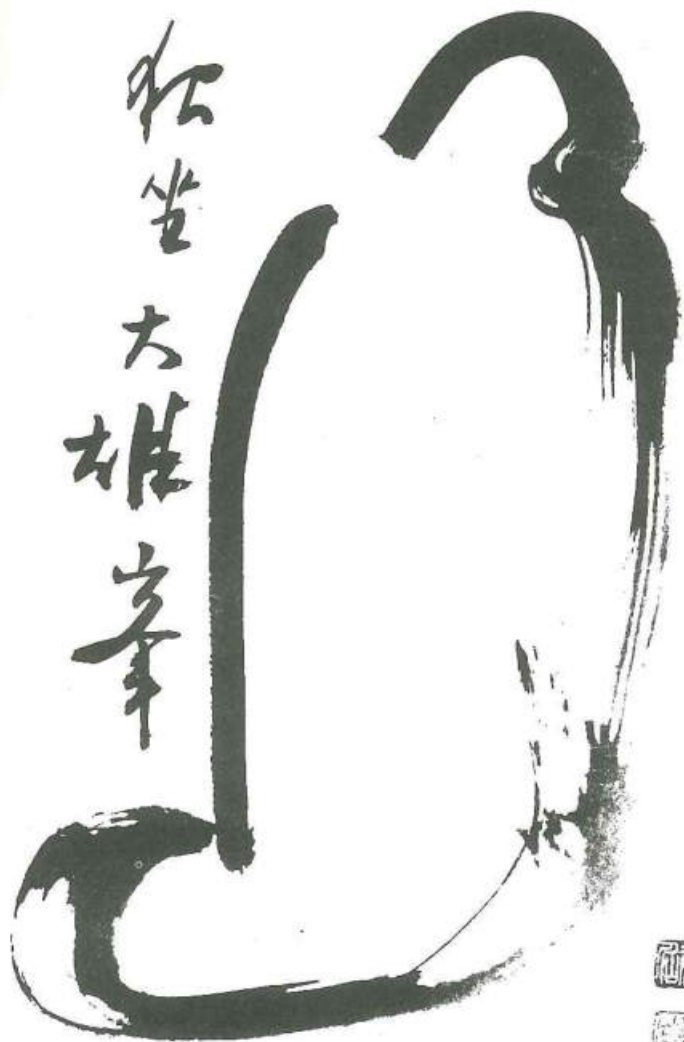 独坐大雄峯